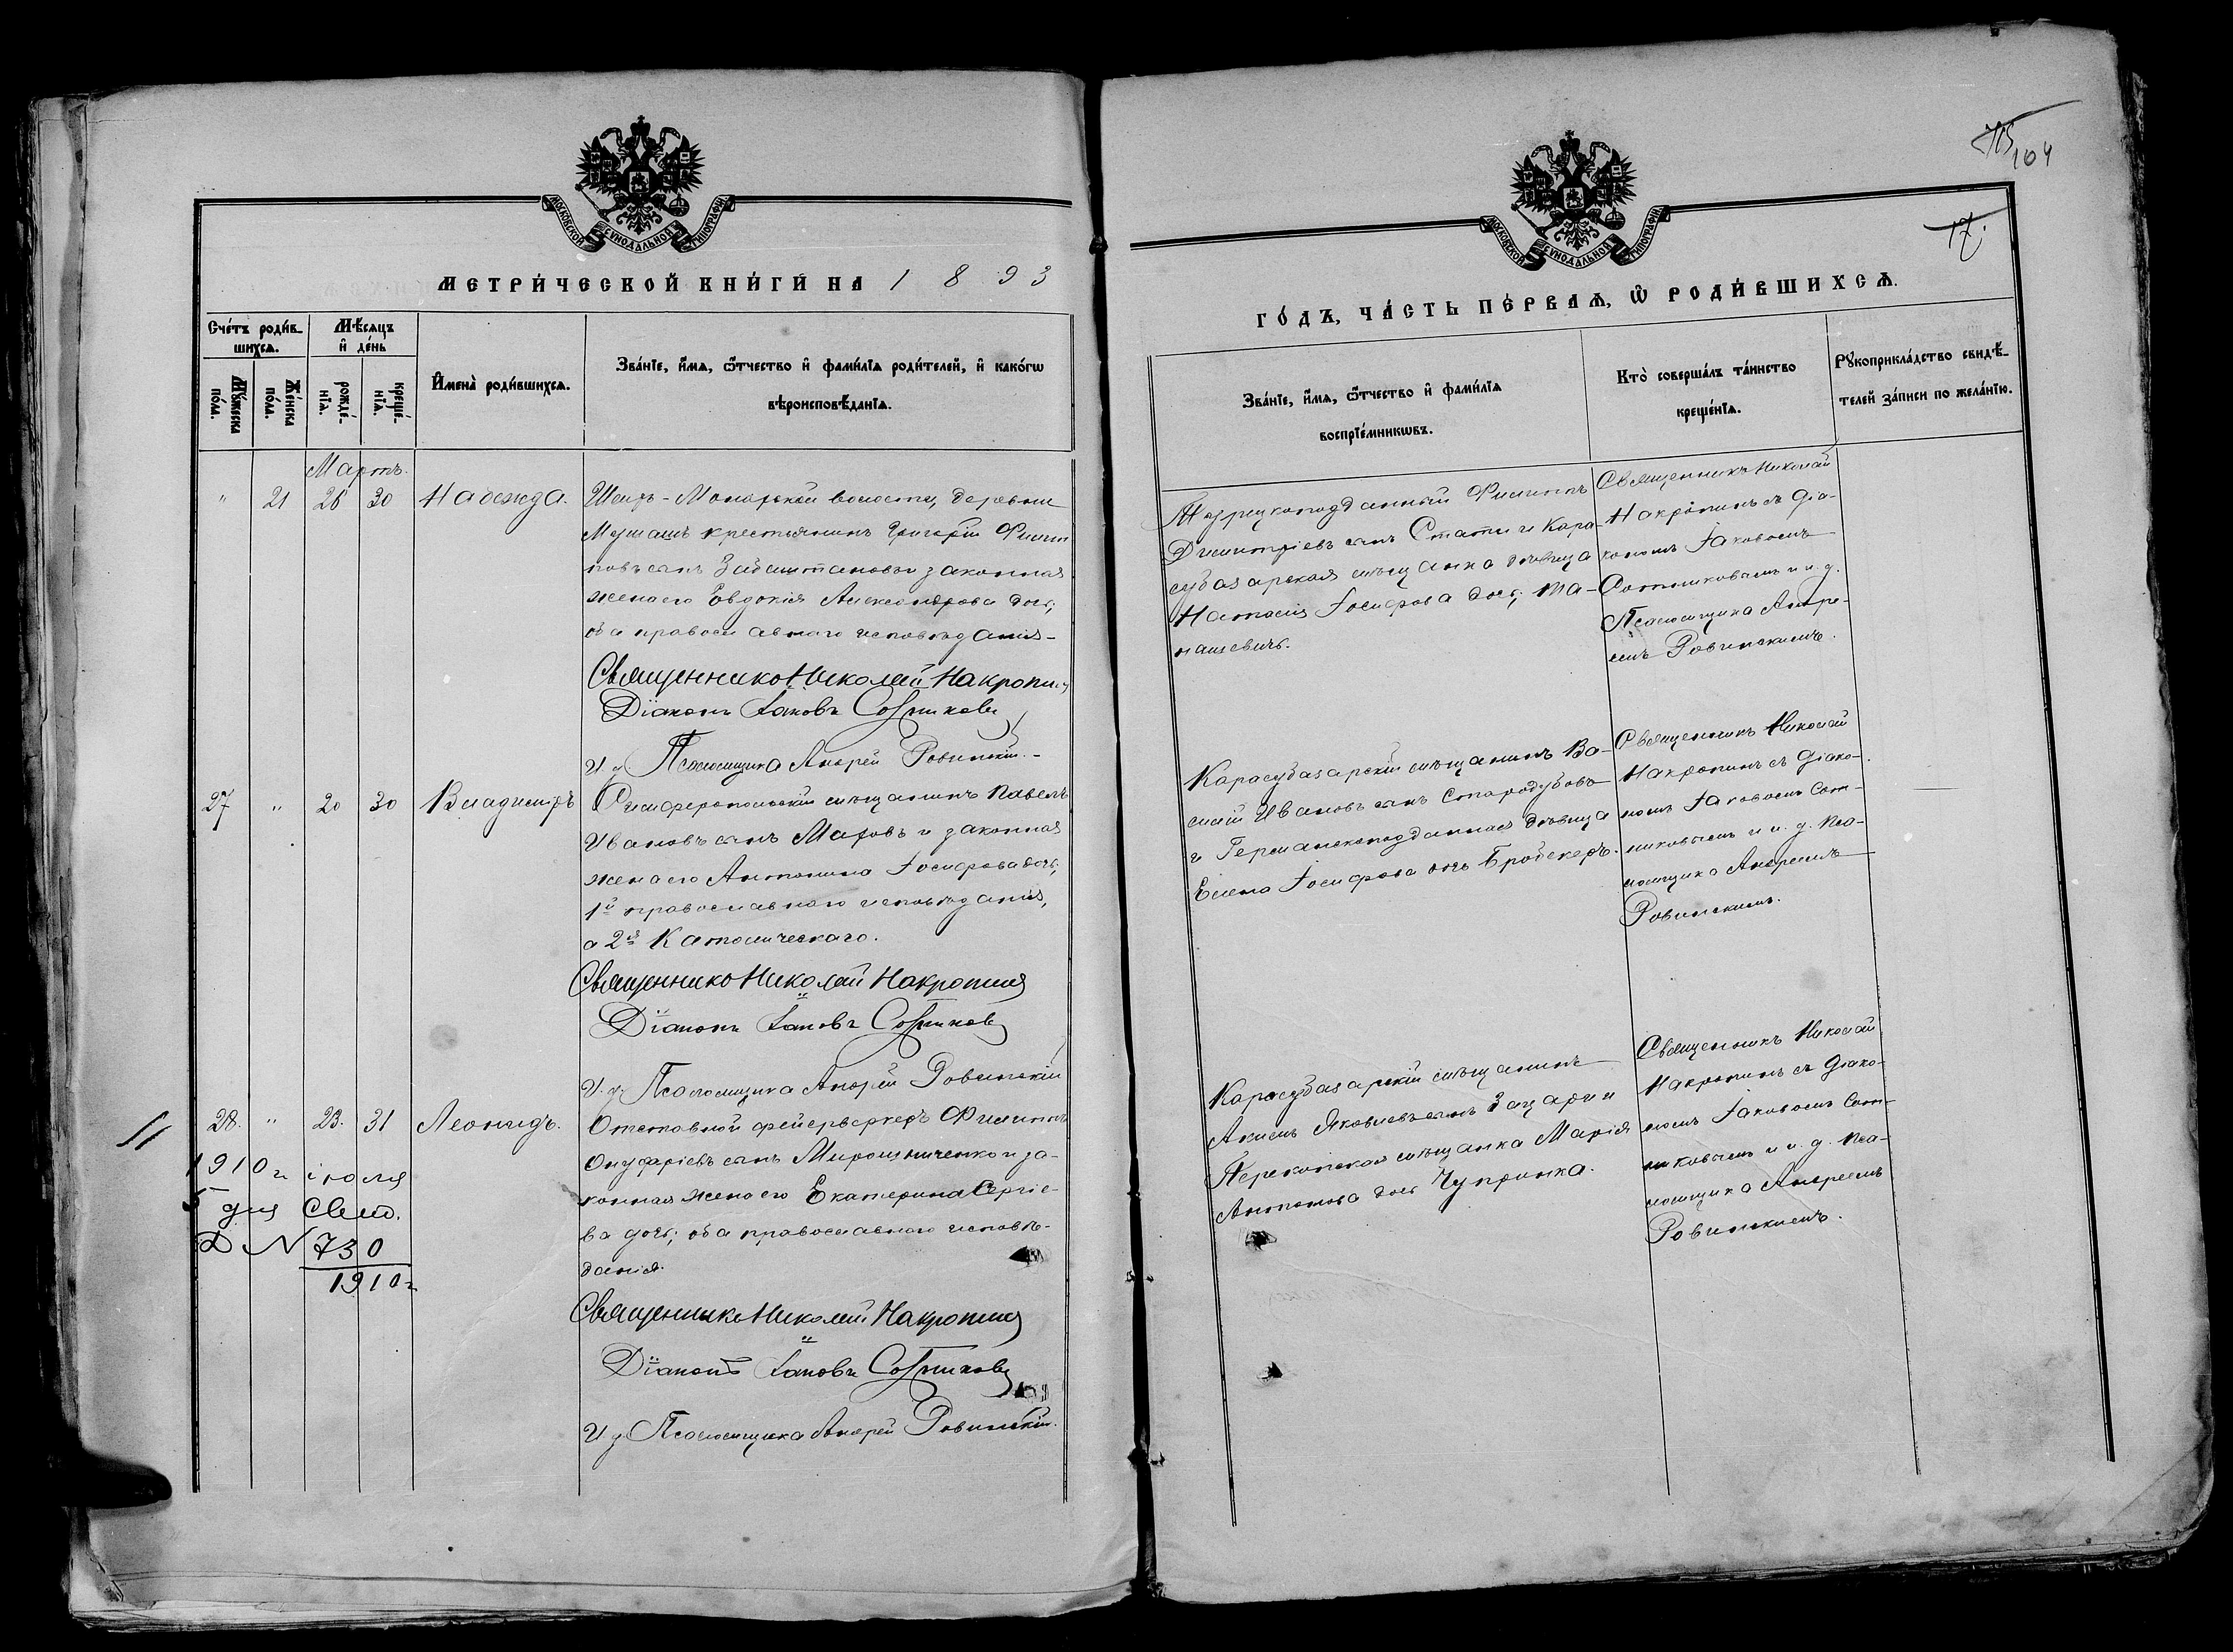 МОСКОВСКОЙ СѴНОДАЛЬНОЙ ТИПОГРАФІИ
МЕТРИ́ЧЕСКОЙ КНИ́ГИ НА 1893
Сче́тъ роди́вшихсѧ.
Мꙋ́жеска по́ла.
Же́нска по́ла.
Мѣ́сѧцъ и҆ де́нь
рожде́нїѧ.
креще́нїѧ.
И҆мена̀ роди́вшихсѧ.
Зва́нїе, и҆́мѧ, ѻ҆́тчество и҆ фами́лїѧ роди́телей, и҆ како́гѡ
вѣроисповѣ́данїѧ.
Мартъ.
" 21 26 30 Надежда.
Шеихъ-Монакской волости, деревни
Мушашъ крестьянинъ Григорій Филип
повъ сынъ законная
жена его Евдокія Александрова дочь,
оба православнаго исповѣданія-
Священникъ Николай Накропинъ
Діаконъ Іаковъ Сотниковъ
И. д. Псаломщика Андрей Ровинскій.-
27 " 20 30 Владиміръ
Симферопольскій мѣщанинъ Павелъ
Ивановъ сынъ Маховъ и законная
жена его Антонина Іосифова дочь,
1й православнаго исповѣданія,
а 2я Католическаго.
Священникъ Николай Накропинъ
Діаконъ Іаковъ Сотниковъ
И. д. Псаломщика Андрей Ровинскій
28. " 23. 31 Леонидъ.
Отставной фейерверкеръ Филиппъ
Онуфріевъ сынъ Мирошниченко и за-
конная жена его Екатерина Сергіе-
ва дочь; оба православнаго исповѣ-
данія.
1910 г. іюля
5 дня свид.
№ 730
1910 г.
Священникъ Николай Накропинъ
Діаконъ Іаковъ Сотниковъ
И. д. Псаломщика Андрей Ровинскій.
104
17.
МОСКОВСКОЙ СѴНОДАЛЬНОЙ ТИПОГРАФІИ
ГО́ДЪ, ЧА́СТЬ ПЕ́РВАѦ, Ѽ РОДИ́ВШИХСѦ.
Зва́нїе, и҆́мѧ, ѻ҆́тчество и҆ фами́лїѧ
воспрїе́мникѡвъ.
Кто̀ соверша́лъ та́инство
креще́нїѧ.
Рꙋкоприкла́дство свидѣ́-
телей за́писи по жела́нїю.
Турецкоподданный Филиппъ
Димитріевъ сынъ Стати и Кара-
субазарская мѣщанка дѣвица
Наталія Іосифова дочь, Ма-
нацевичъ.
Священникъ Николай
Накропинъ съ діа-
кономъ Іаковомъ
Сотниковымъ и и. д.
Псаломщика Андре-
емъ Ровинскимъ.
Карасубазарскій мѣщанинъ Ва-
силій Ивановъ сынъ Стародубовъ
и Германскоподданная дѣвица
Елена Іосифова дочь Бродскеръ.
Священникъ Николай
Накропинъ съ діако-
номъ Іаковомъ Сот-
никовымъ и и. д. Пса-
ломщика Андреемъ
Ровинскимъ.
Карасубазарскій мѣщанинъ
Акимъ Яковлевъ сынъ Захари и
Перекопская мѣщанка Марія
Антонова дочь Чупринка.
Священникъ Николай
Накропинъ съ діако-
номъ Іаковомъ Сот-
никовымъ и и. д. Пса-
ломщика Андреемъ
Ровинскимъ.